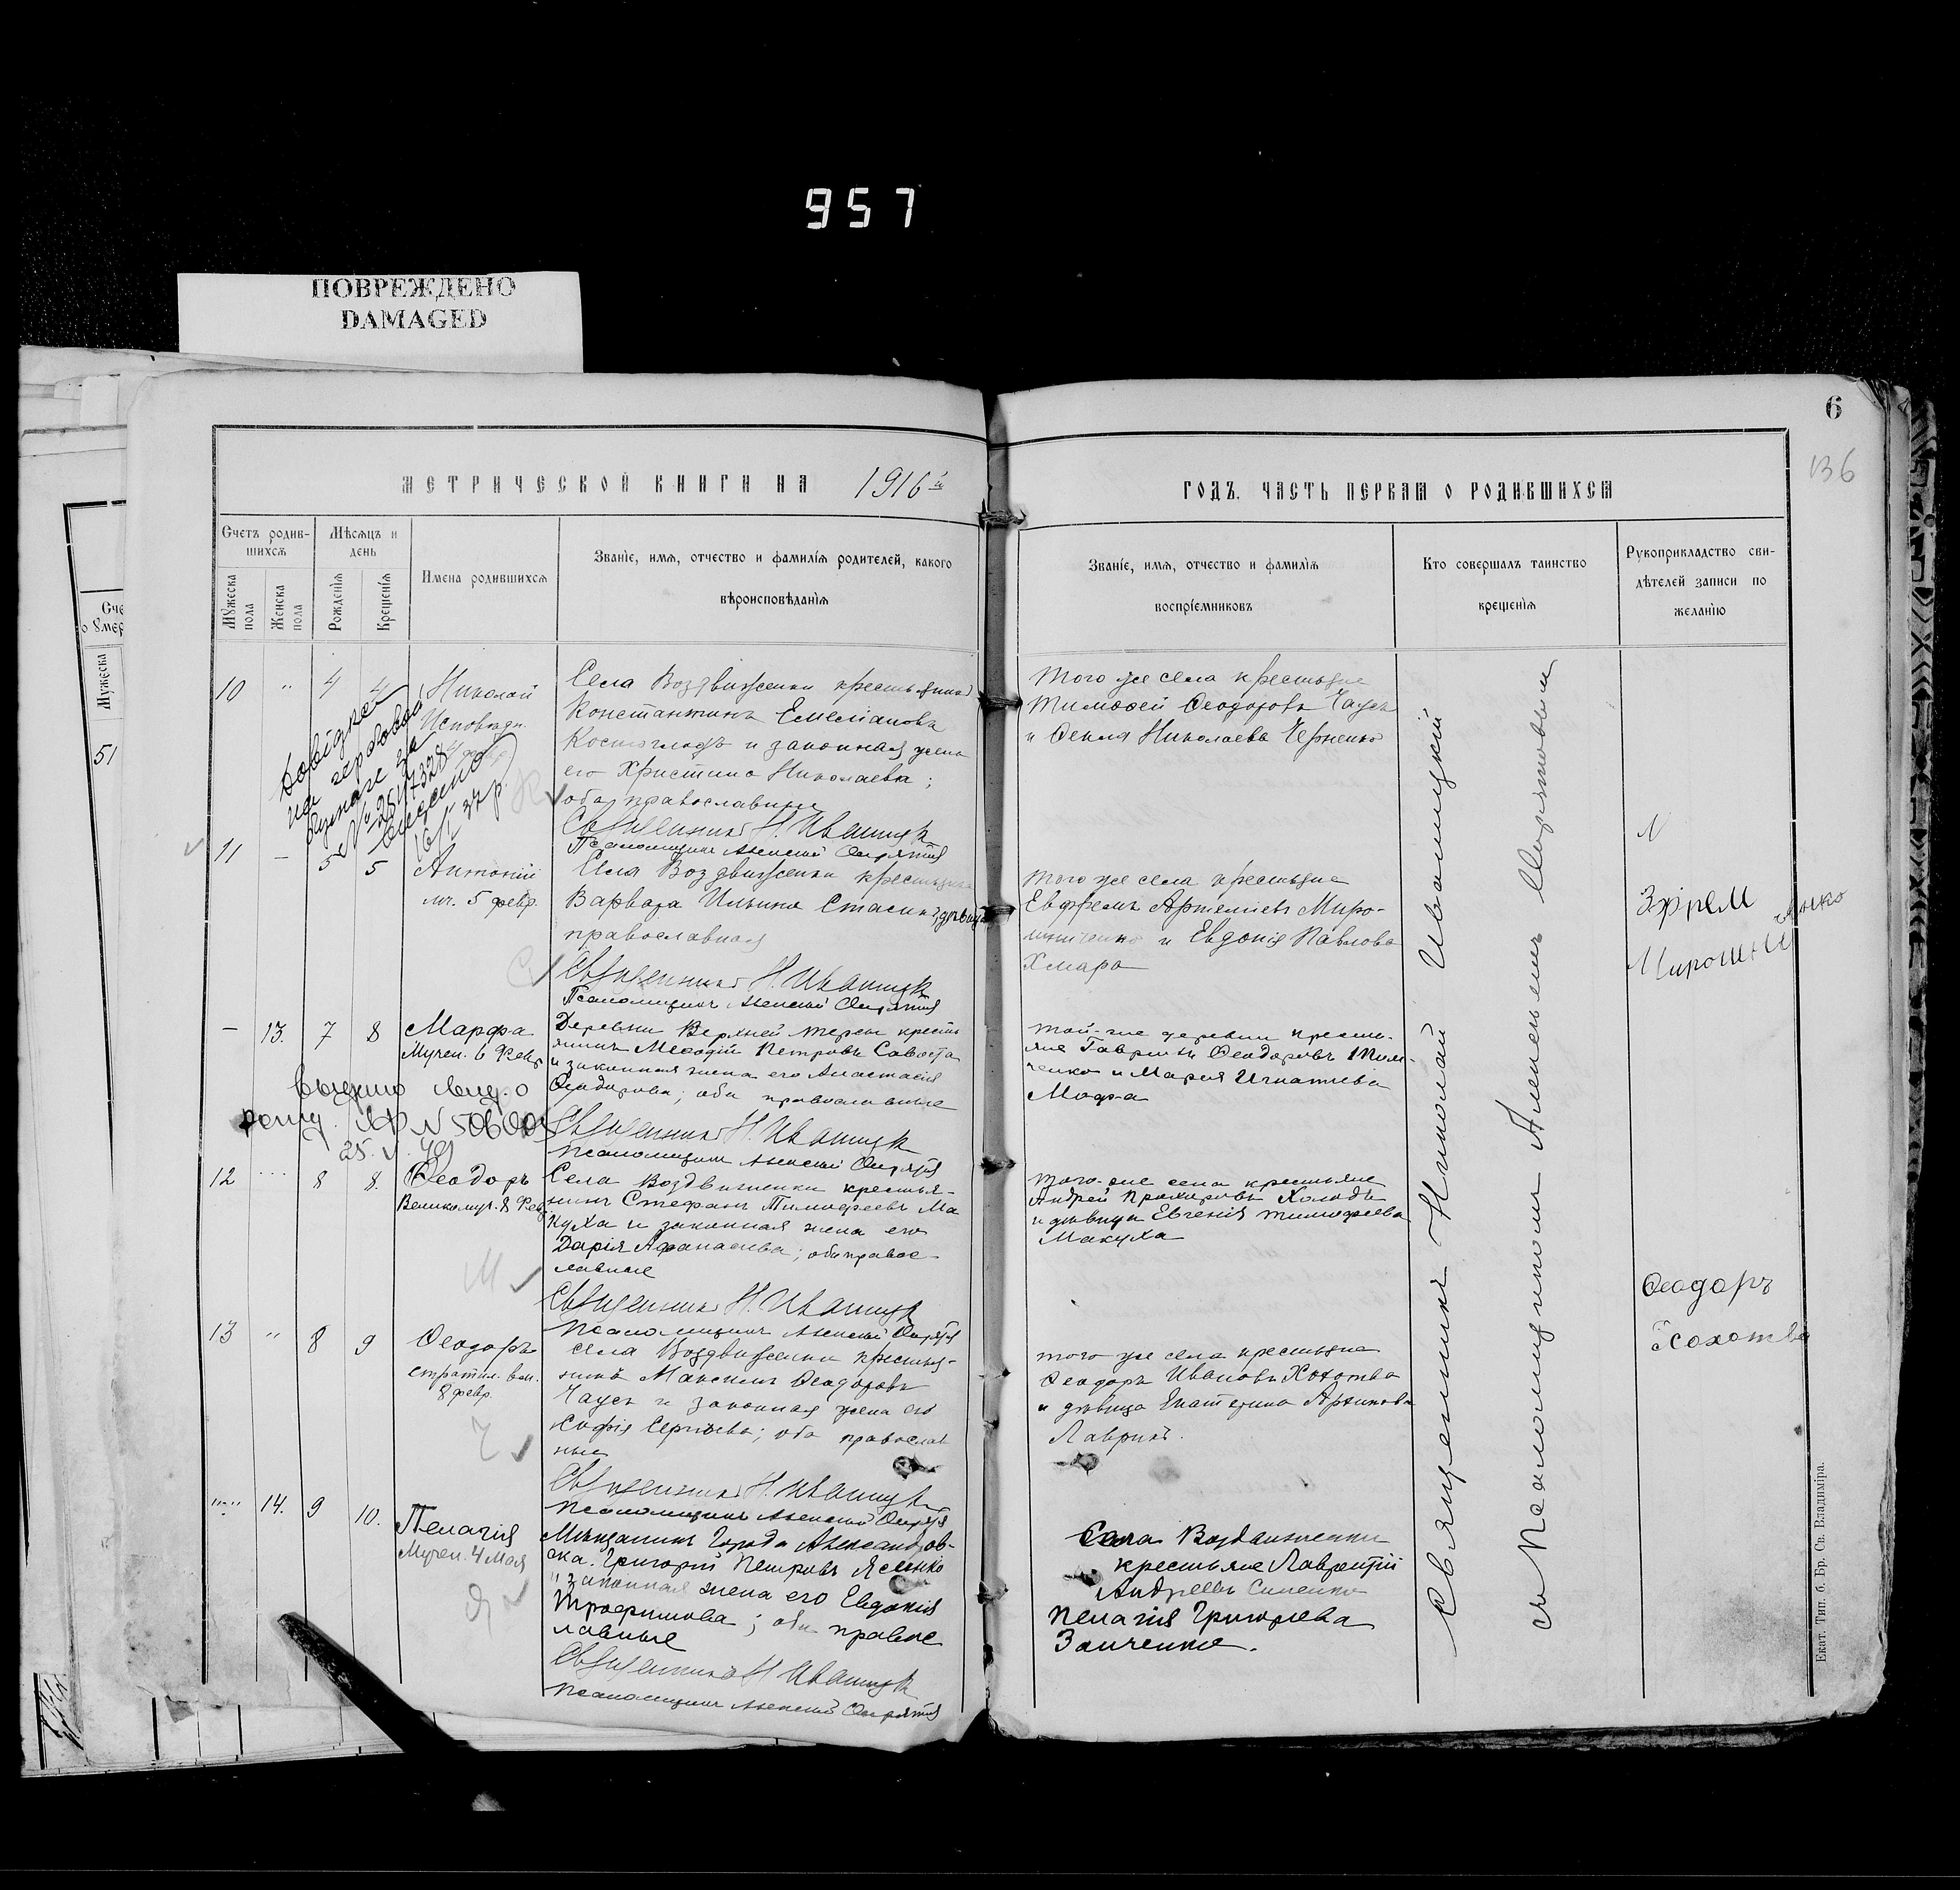 957
ПОВРЕЖДЕНО
DAMAGED
6
136
МЕТРИЧЕСКОЙ КНИГИ НА 1916й
ГОДЪ, ЧАСТЬ ПЕРВАЯ О РОДИВШИХСЯ
Счетъ родив-
шихся
Мужеска пола
Женска пола
Мѣсяцъ и
день
Рожденія
Крещенія
Имена родившихся
Званіе, имя, отчество и фамилія родителей, какого
вѣроисповѣданія
Званіе, имя, отчество и фамилія
воспріемниковъ
Кто совершалъ таинство
крещенія
Рукоприкладство сви-
дѣтелей записи по
желанію
Мужеска
51
10 " 4 4
Николай
Исповѣдн.
Села Воздвиженки крестьянинъ
Константинъ Емеліановъ
Костогладъ и законная жена
его Христина Николаева;
оба православные
Священникъ Н. Иваницкій
Псаломщикъ Алексій
того же села крестьяне
Тимофей Феодоровъ Чаусъ
и Фекла Николаева Черненко
Довідка
16/I 37 р.
К
11 - 5 5
Антоній
мч. 5 февр.
Села Воздвиженки крестьянка
Варвара Ильина дѣвица
православная
С
Священникъ Н. Иваницкій
Псаломщикъ Алексій
того же села крестьяне
Евфремъ Артемьевъ Миро-
шниченко и Евдокія Павлова
Хмара
Эфрем
Мирошниченко
- 13. 7 8
Марфа
Мучен. 6 Февр
Деревни Верхней Терсы кресть
янинъ Меѳодій Петровъ Савоста
и законная жена его Анастасія
Феодорова; оба православные
25. V. 49
Священникъ Н. Иваницкій
Псаломщикъ Алексій
той-же деревни кресть-
яне Гавріилъ Феодоровъ
и Марія Игнатьева
12 8 8.
Феодоръ
Великомуч. 8 Февр
Села Воздвиженки крестья-
нинъ Стефанъ Тимофеевъ Ма
куха и законная жена его
Дарія Афанасиева; оба правос-
лавные
М
Священникъ Н. Иваницкій
Псаломщикъ Алексій
того-же села крестьяне
Андрей Прохоровъ Холодъ
и дѣвица Евгенія Тимофеева
Макуха
13 " 8 9
Феодоръ
стратил. вел.
8 февр.
села Воздвиженки крестья-
нинъ Максимъ Феодоровъ
Чаусъ и законная жена его
Софія Сергіева; оба православ
ные
Ч
Священникъ Н. Иваницкій
Псаломщикъ Алексій
того же села крестьяне
Феодоръ Ивановъ Хохотва
и дѣвица Екатерина
Лаврикъ.
Феодоръ
Хохотва
14. 9 10.
Пелагія
Мучен. 4 Мая
Мѣщанинъ города Александров-
ска. Григорій Петровъ Ясенко
и законная жена его Евдокія
Трофимова; оба правос
лавные
Я
Священникъ Н. Иваницкій
Псаломщикъ Алексій
Села Воздвиженки
крестьяне Лаврентій
Андреевъ Синенко
Пелагія Григорьева
Заиченко.
Священникъ Николай Иваницкій
съ Псаломщикомъ Алексѣемъ
Екат. Тип. б. Бр. Св. Владиміра.